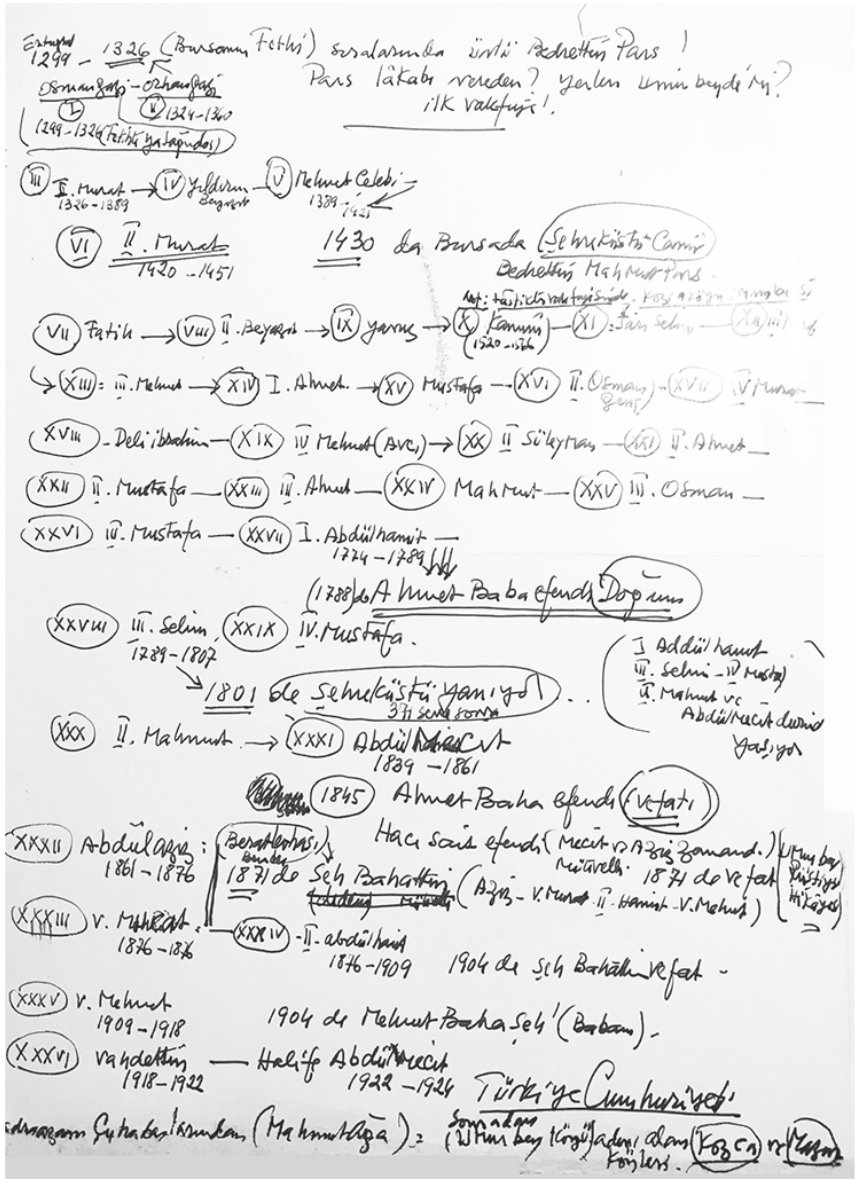 Ertuğrul
1299 - 1326 (Bursanın Fethi) sıralarında ünlü Bedrettin Pars !
Osmangazi - Orhangazi Pars lâkabı nereden? yerleri umurbeyde mi?
I II 1324-1360 ilk vakfiye!.
1299-1326 (Fetihte yatağında)
III I. Murat → IV Yıldırım Beyazıt - V Mehmet Çelebi -
1326-1389 1389-1421
VI II. Murat 1430 da Bursada Şehreküstü Camii
1420-1451 Bedrettin Mahmut Pars -
VII Fatih → VIII II. Beyazıt → IX Yavuz → X Kanunî - XI: Sarı Selim - XII III Murat
(1520-1566)
↳ XIII = III. Mehmet → XIV I. Ahmet → XV Mustafa - XVI II. Osman (Genç) - XVII IV Murat
XVIII - Deli ibrahim - XIX IV Mehmet (Avcı) → XX II Süleyman - XXI II. Ahmet -
XXII II. Mustafa - XXIII III. Ahmet - XXIV Mahmut - XXV III. Osman -
XXVI III. Mustafa - XXVII I. Abdülhamit -
1774-1789
(1788) de Ahmet Baba efendi Doğum
XXVIII III. Selim, XXIX IV. Mustafa.
1789-1807
I Abdülhamit
III. Selim - IV Mustafa
II. Mahmut ve
Abdülmecit devrinde
Yaşıyor
1801 de Şehreküstü yanıyor . . .
371 sene sonra
XXX II. Mahmut → XXXI Abdülmecit
1839-1861
1845 Ahmet Baha efendi (vefatı)
XXXII Abdülaziz: Hacı Sait efendi (Mecit ve Aziz zamand.)
1861-1876 Mütevelli 1871 de vefat
1871 de Şeh Bahattin (Aziz - V. Murat - II - Hamit - V. Mehmet)
XXXIII V. Murat - XXXIV - II - abdülhamit
1876-1876 1876-1909 1904 de Şeh Bahattin vefat -
XXXV V. Mehmet
1909-1918 1904 de Mehmet Baha Şeh (Babam).
XXXVI Vahdettin - Halife Abdülmecit
1918-1922 1922-1924 Türkiye Cumhuriyeti
(Mahmutağa) = Sonradan (Umurbey Köyü) adını alan Kozca ve
Köyleri.